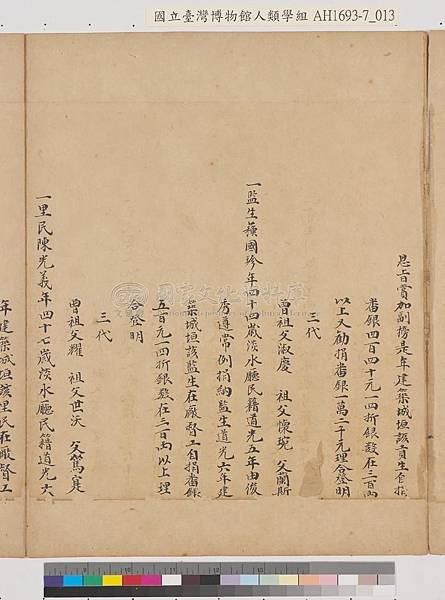 國立臺灣博物館人類學組 AH1693-7_013
恩旨賞加副榜是年建築城垣該貢生自捐
番銀四百四十元一四折銀數在三百兩
以上又勸捐番銀一萬二千元理合登明
三代
曾祖父淑慶 祖父懷琬 父蘭斯
一監生 國珍年四十四歲淡水廳民籍道光五年由俊
秀遵常例捐納監生道光六年建
築城垣該監生在廠督工自捐番銀
五百元一四折銀數在三百兩以上理
合登明
三代
曾祖父耀 祖父世沃 父篤寔
一里民陳光義年四十七歲淡水廳民籍道光六
年建築城垣該里民在廠督工